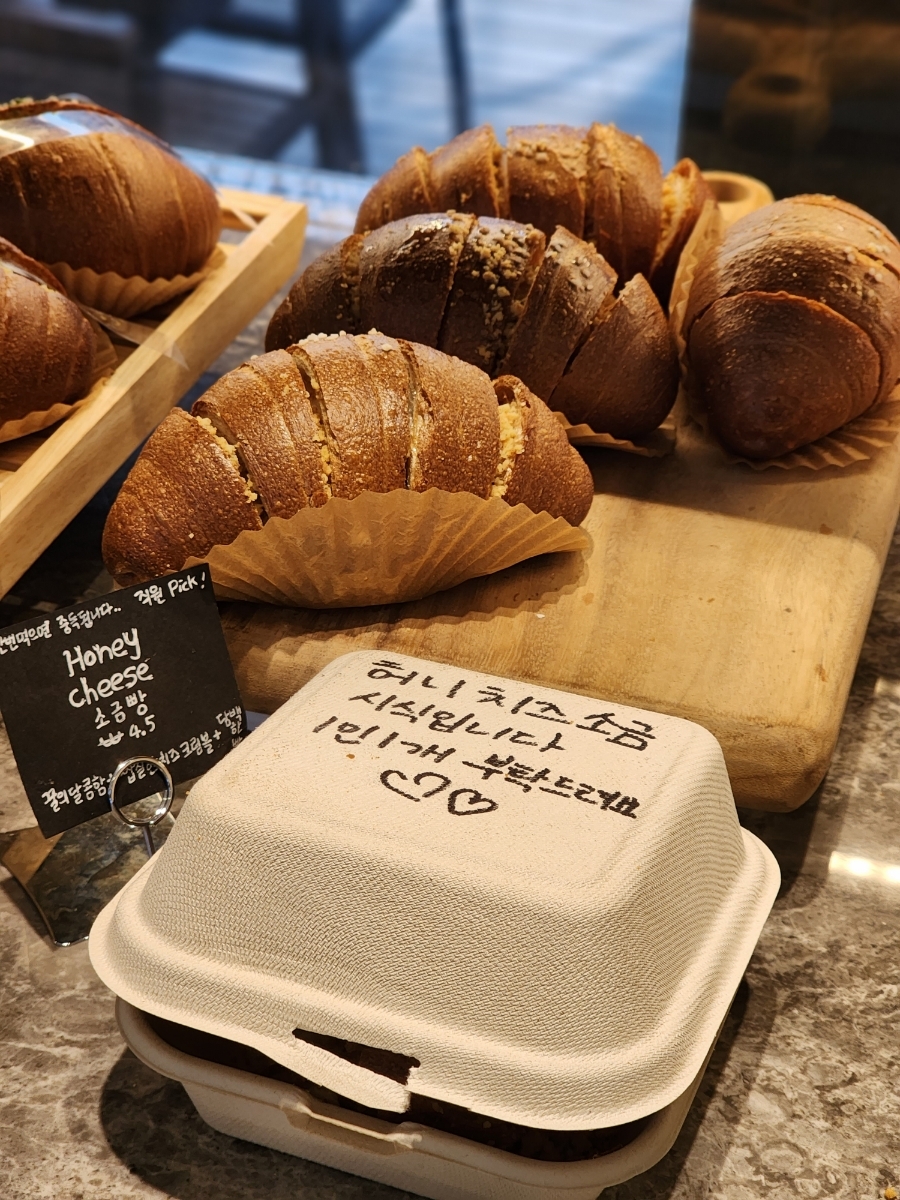 중독됩니다.. 직원 Pick!
Honey
cheese
소금빵
₩ 4.5
꿀의달콤함 치즈크림볼 +
허니 치즈 소금
시식입니다
1인 1개 부탁드려요